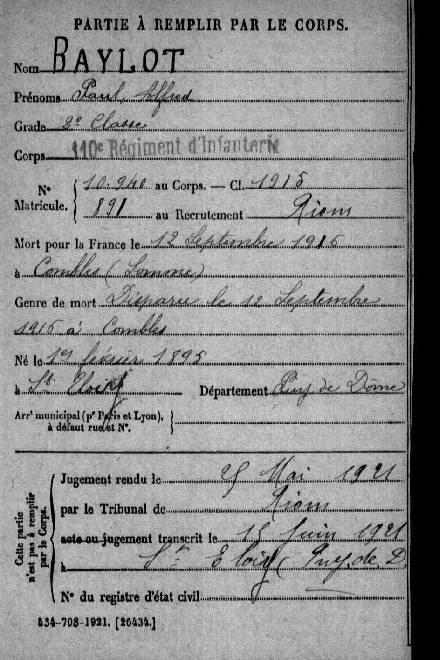 PARTIE À REMPLIR PAR LE CORPS.
Nom BAYLOT
Prénoms Paul, Alfred
Grade 2e Classe
Corps 110e Régiment d'Infanterie
N° Matricule. 10.940 au Corps. — Cl. 1915
891 au Recrutement Riom
Mort pour la France le 12 Septembre 1916
à Combles (Somme)
Genre de mort Disparu le 12 Septembre
1916 à Combles
Né le 1er février 1895
à St Eloy Département Puy de Dôme
Arr' municipal (pr Paris et Lyon),
à défaut rue et N°.
Cette partie n'est pas à remplir par le Corps.
Jugement rendu le Mai 1921
par le Tribunal de Riom
acte ou jugement transcrit le 15 Juin 1921
à St Eloy (Puy. de D.
N° du registre d'état civil
534-708-1921. [26434.]